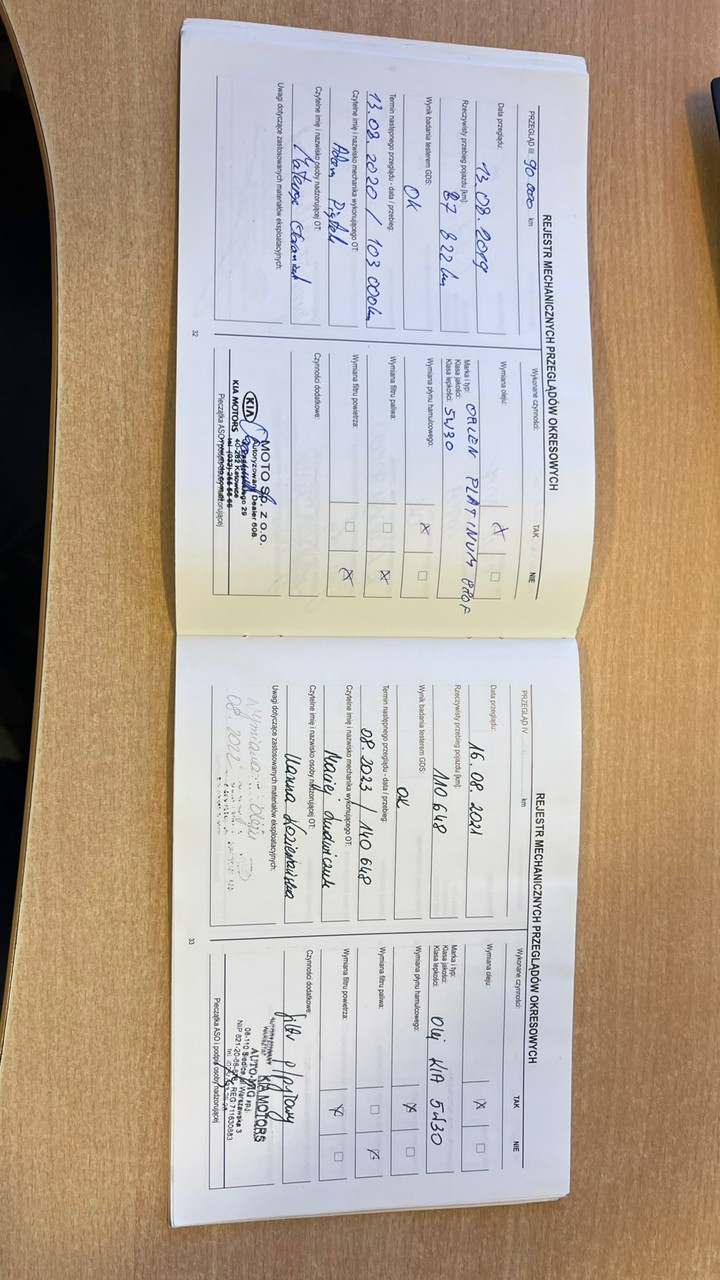 REJESTR MECHANICZNYCH PRZEGLĄDÓW OKRESOWYCH
PRZEGLĄD III 90 000 km
Data przeglądu:
13.08.2019
Rzeczywisty przebieg pojazdu [km]:
87 822 km
Wynik badania testerem GDS:
OK
Termin następnego przeglądu - data / przebieg:
13.08.2020 / 103 000 km
Czytelne imię i nazwisko mechanika wykonującego OT:
Adam
Czytelne imię i nazwisko osoby nadzorującej OT:
Mateusz
Uwagi dotyczące zastosowanych materiałów eksploatacyjnych:
32
Wykonane czynności: TAK NIE
Wymiana oleju: X
Marka i typ: ORLEN PLATINUM PROF
Klasa jakości:
Klasa lepkości: 5W30
Wymiana płynu hamulcowego: X
Wymiana filtru paliwa: X
Wymiana filtru powietrza: X
Czynności dodatkowe:
KIA MOTO Sp. z o.o.
Autoryzowany Dealer 608
29
KIA MOTORS 40-262 Katowice
Pieczątka ASO nadzorującej
REJESTR MECHANICZNYCH PRZEGLĄDÓW OKRESOWYCH
PRZEGLĄD IV km
Data przeglądu:
16.08.2021
Rzeczywisty przebieg pojazdu [km]:
110 648
Wynik badania testerem GDS:
OK
Termin następnego przeglądu - data / przebieg:
08.2023 / 140 648
Czytelne imię i nazwisko mechanika wykonującego OT:
Maciej
Czytelne imię i nazwisko osoby nadzorującej OT:
Hanna
Uwagi dotyczące zastosowanych materiałów eksploatacyjnych:
Wymiana oleju
08.2022
33
Wykonane czynności: TAK NIE
Wymiana oleju: X
Marka i typ:
Klasa jakości: Olej KIA 5W30
Klasa lepkości:
Wymiana płynu hamulcowego: X
Wymiana filtru paliwa: X
Wymiana filtru powietrza: X
Czynności dodatkowe:
filtr p/pyłkowy
KIA MOTORS
08-110 Siedlce, ul. Warszawska 3
REG 711630883
Pieczątka ASO i podpis osoby nadzorującej